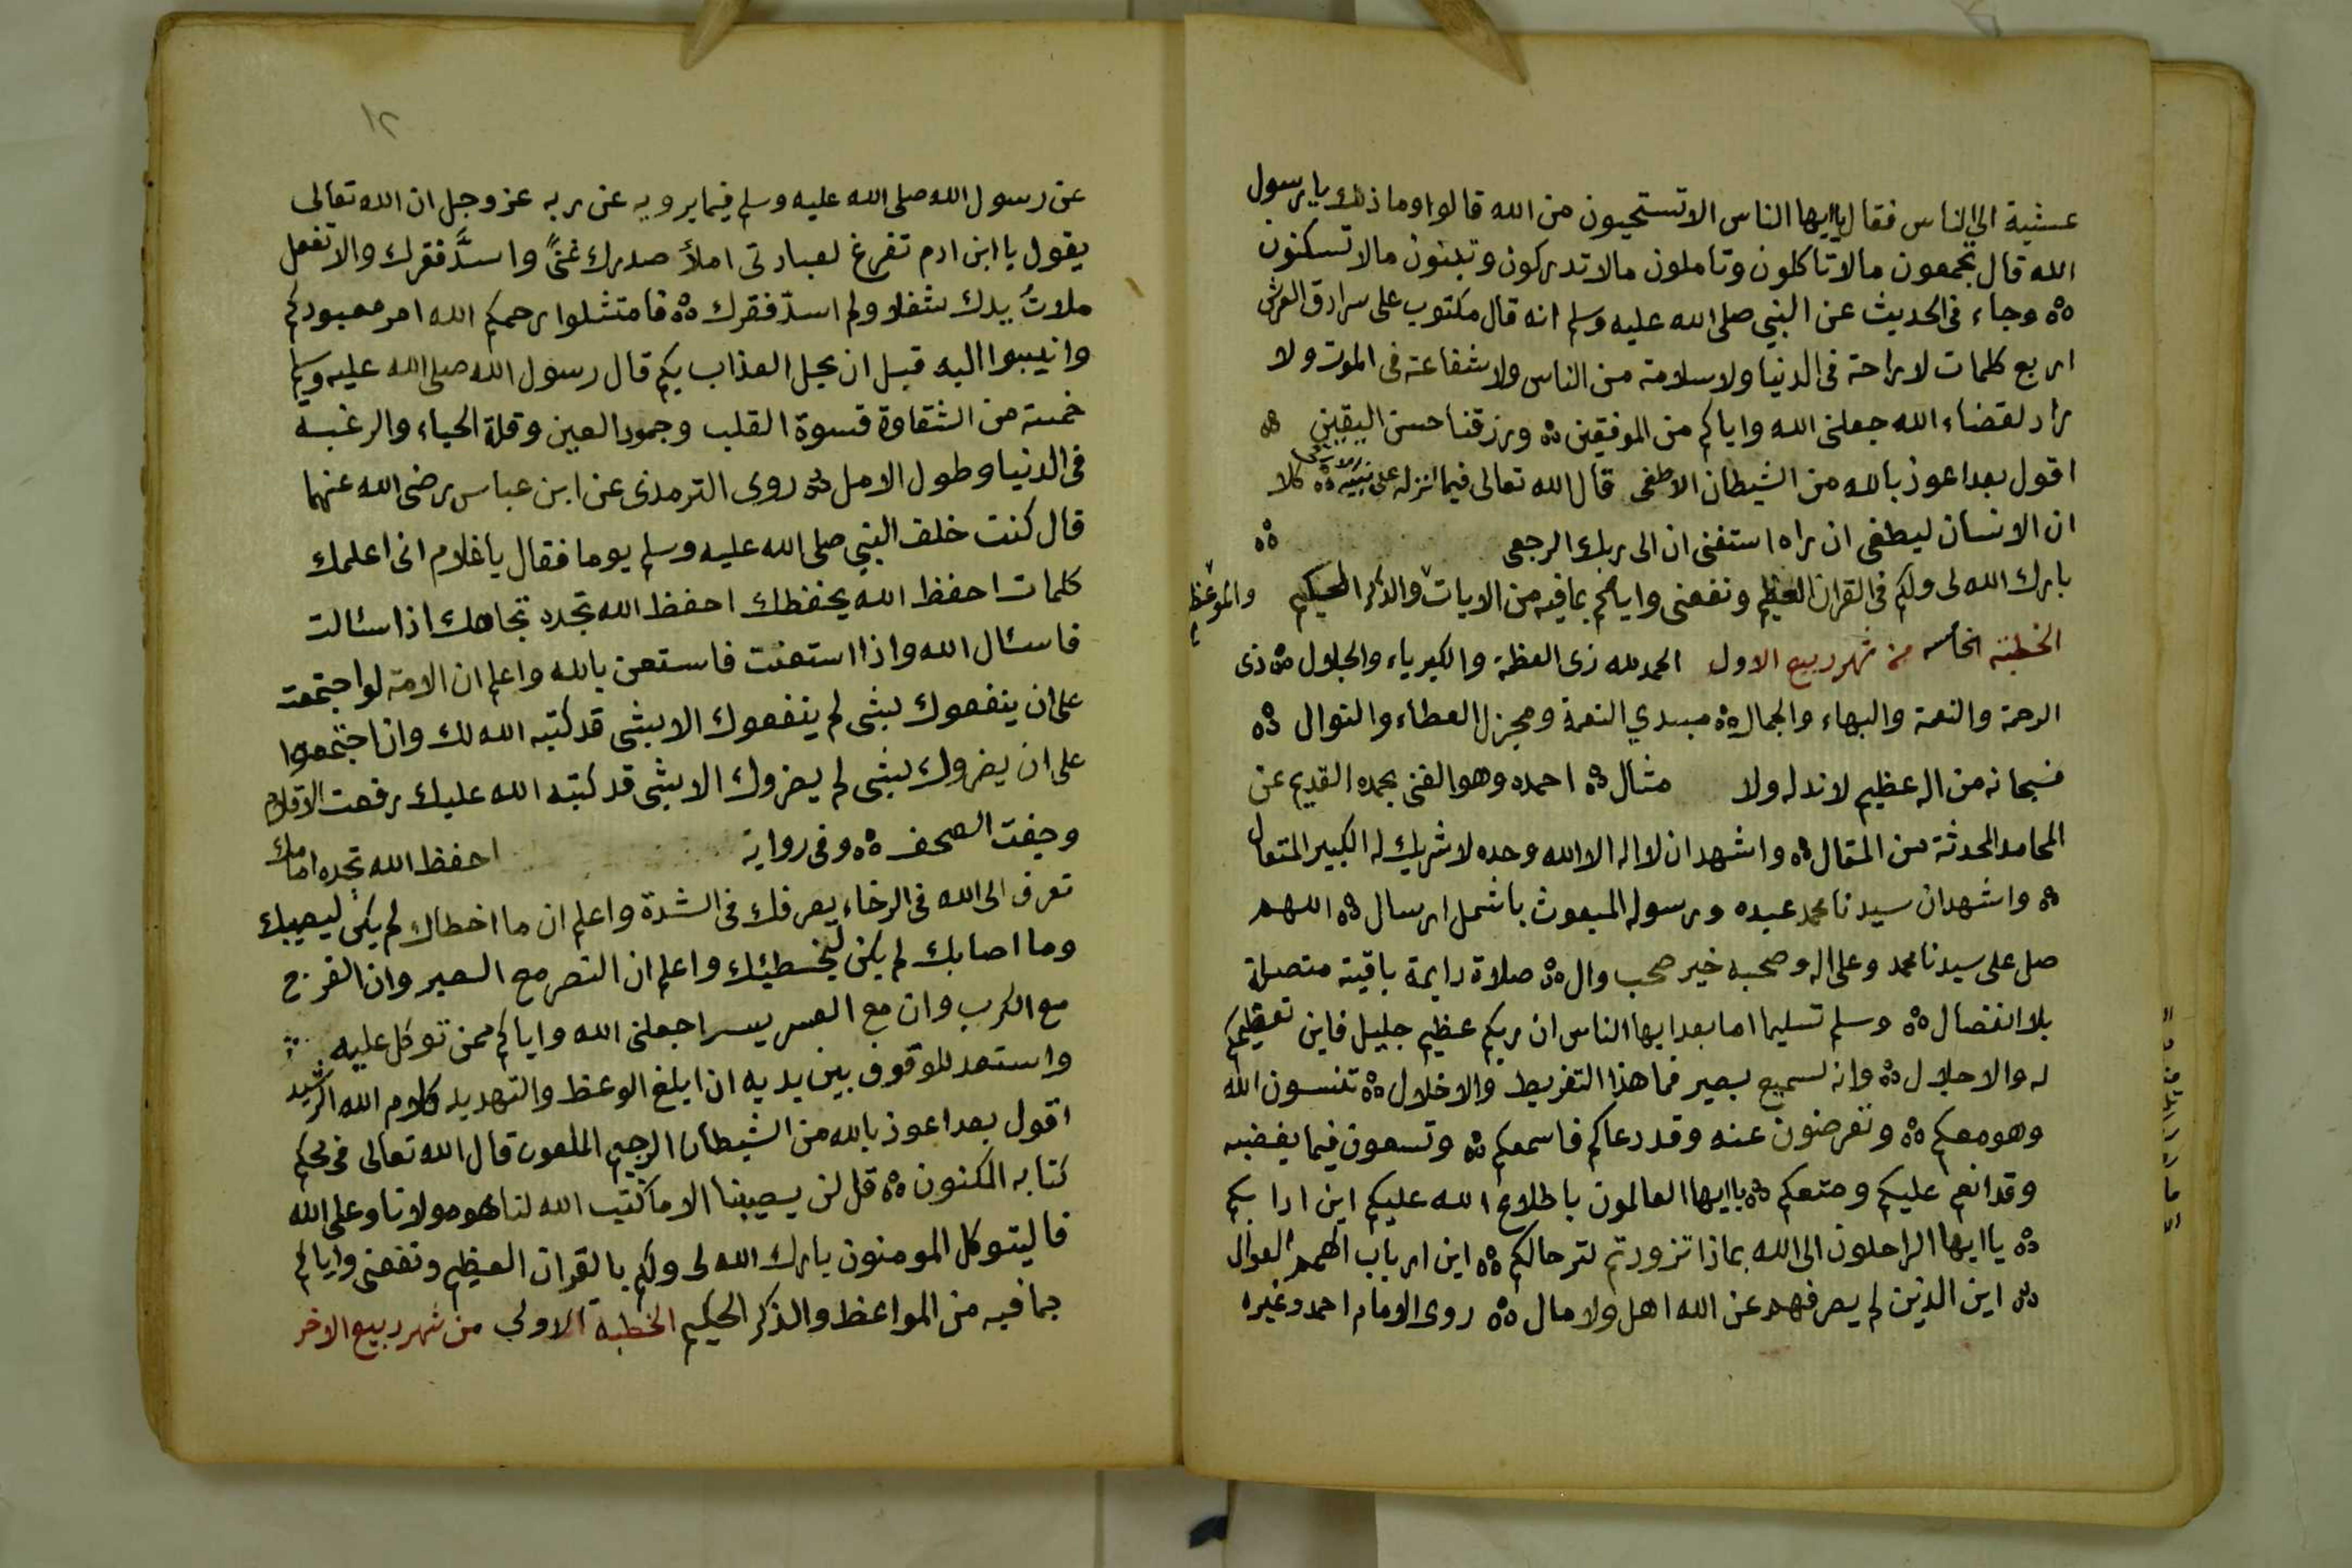 عشية الى الناس فقال يا ايها الناس الا تستحيون من الله قالوا وما ذلك يا رسول
الله قال تجمعون مالا تاكلون وتاملون مالا تدركون وتبنون مالا تسكنون
ه وجاء فى الحديث عن النبي صلى الله عليه وسلم انه قال مكتوب على سرادق العرش
اربع كلمات لا راحة فى الدنيا ولا سلامة من الناس ولا شفاعة فى الموت ولا
راد لقضاء الله جعلنى الله واياكم من الموفقين ه ورزقنا حسن اليقين ه
اقول بعد اعوذ بالله من الشيطان الاطغى قال الله تعالى فيما انزله على نبيه ه كلا
ان الانسان ليطغى ان راه استغنى ان الى ربك الرجعى ه
بارك الله لى ولكم فى القران العظيم ونفعنى واياكم بما فيه من الايات والذكر الحكيم
الخطبة الخامسه من شهر ربيع الاول الحمد لله ذى العظة والكبرياء والجلال ه ذى
الرحمة والنعمة والبهاء والجمال ه مبدي النعمة ومجزل العطاء والنوال ه
فسبحانه من اله عظيم لا ند له ولا مثال ه احمده وهو الغنى بحمده القديم عن
المحامد المحدثة من المقال ه واشهد ان لا اله الا الله وحده لا شريك له الكبير المتعال
ه واشهد ان سيدنا محمد عبده ورسوله المبعوث باشمل ارسال ه اللهم
صل على سيدنا محمد وعلى اله وصحبه خير صحب وال ه صلاة دايمة باقية متصلة
بلا انفصال ه وسلم تسليما اما بعد ايها الناس ان ربكم عظيم جليل فاين تعظيمكم
له والاجلال ه وانه لسميع بصير فما هذا التفريط والاخلال ه تنسون الله
وهو معكم ه وتعرضون عنه وقد دعاكم فاسمعكم ه وتسعون فيما يغضبه
وقد انعم عليكم ومتعكم ه يا ايها العالمون باطلاع الله عليكم اين ادابكم
ه يا ايها الراحلون الى الله بماذا تزودتم لترحالكم ه اين ارباب الهمم العوال
ه اين الذين لم يصرفهم عن الله اهل ولا مال ه روى الامام احمد وغيره
١٢
عن رسول الله صلى الله عليه وسلم فيما يرويه عن ربه عز وجل ان الله تعالى
يقول يا ابن ادم تفرغ لعبادتى املأ صدرك غنىً واسدَّ فقرك والا تفعل
ملاتُ يدك شغلا ولم اسدّ فقرك ه فامتثلوا رحمكم الله امر معبودكم
وانيبوا اليه قبل ان يحل العذاب بكم قال رسول الله صلى الله عليه وسلم
خمسة من الشقاوة قسوة القلب وجمود العين وقلة الحياء والرغبة
فى الدنيا وطول الامل ه روى الترمذى عن ابن عباس رضى الله عنهما
قال كنت خلف النبي صلى الله عليه وسلم يوما فقال يا غلام انى اعلمك
كلمات احفظ الله يحفظك احفظ الله تجده تجاهك اذا سئالت
فاسئال الله واذا استعنت فاستعن بالله واعلم ان الامة لو اجتمعت
على ان ينفعوك بشى لم ينفعوك الا بشى قد كتبه الله لك وان اجتمعوا
على ان يضروك بشى لم يضروك الا بشى قد كتبه الله عليك رفعت الاقلام
وجفت الصحف ه وفى رواية احفظ الله تجده امامك
تعرف الى الله فى الرخاء يعرفك فى الشدة واعلم ان ما اخطاك لم يكن ليصيبك
وما اصابك لم يكن ليخطيئك واعلم ان النصر مع الصبر وان الفرج
مع الكرب وان مع العسر يسرا جعلنى الله واياكم ممن توكل عليه
واستعد للوقوف بين يديه ان ابلغ الوعظ والتهديد كلام الله الرشيد
اقول بعد اعوذ بالله من الشيطان الرجيم الملعون قال الله تعالى فى محكم
كتابه المكنون ه قل لن يصيبنا الا ما كتب الله لنا هو مولانا وعلى الله
فاليتوكل المومنون بارك الله لى ولكم بالقران العظيم ونفعنى واياكم
بما فيه من المواعظ والذكر الحكيم الخطبة الاولى من شهر ربيع الاخر